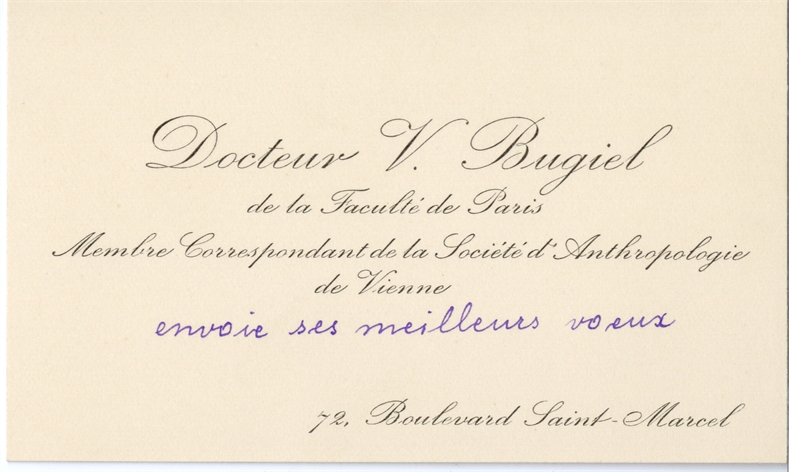 Docteur V. Bugiel
de la Faculté de Paris
Membre Correspondant de la Société d'Anthropologie
de Vienne
envoie ses meilleurs voeux
72, Boulevard Saint-Marcel